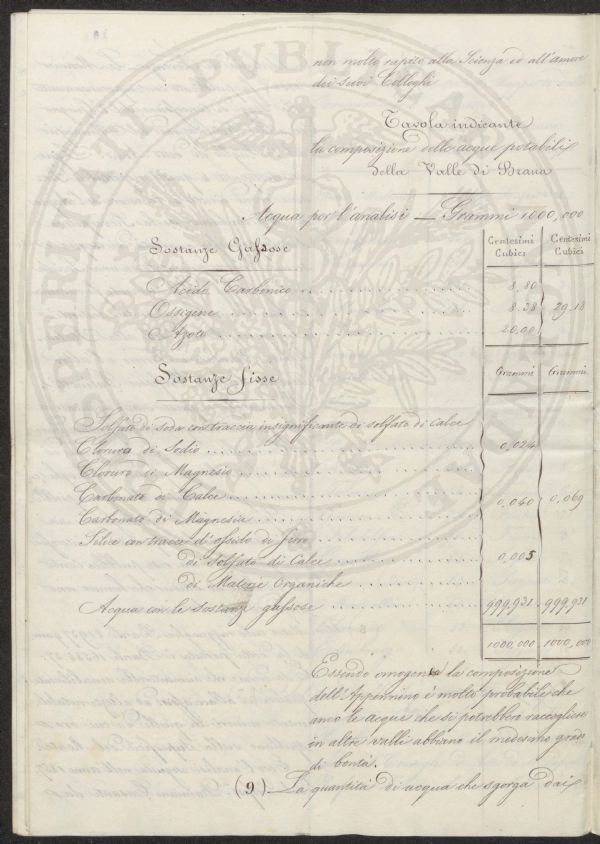 non molto rapito alla Scienza ed all'amore
dei suoi Colleghi
Tavola indicante
la composizione delle acque potabili
della Valle di Brana
Acqua per l'analisi — Grammi 1000,000
Sostanze Gassose
Centesimi Cubici Centesimi Cubici
Acido Carbonico 8,80
Ossigene 8.38 29,18
Azoto 20,00
Sostanze fisse
Grammi Grammi
Solfato di soda con traccia insignificante di solfato di calce
Cloruro di Sodio 0,024
Cloruro di Magnesio
Carbonato di Calce 0,040 0,069
Carbonato di Magnesia
Silice con tracce di ossido di ferro
di Solfato di Calce 0,005
di Materie Organiche
Acqua con le sostanze gassose 999,931 999,931
1000,000 1000,000
Essendo omogenea la composizione
dell'Appennino è molto probabile che
anco le acque che si potrebbero raccogliere
in altre valli abbiano il medesimo grado
di bontà.
(9) La quantità di acqua che sgorga dai
PVBLICAE